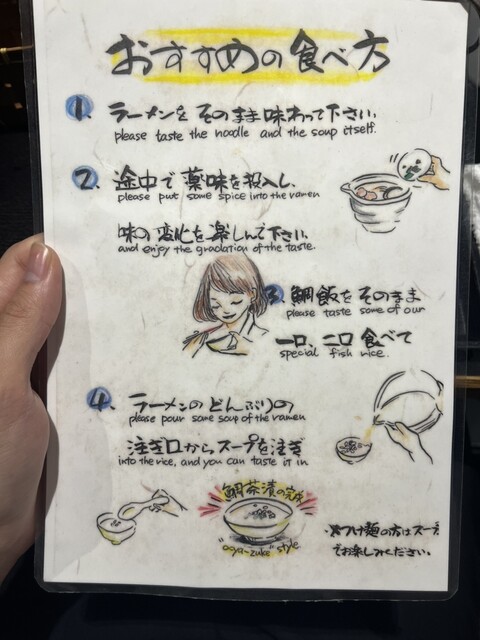 おすすめの食べ方
1. ラーメンをそのまま味わって下さい
please taste the noodle and the soup itself.
2. 途中で薬味を投入し、
please put some spice into the ramen
味の変化を楽しんで下さい
and enjoy the gradation of the taste.
3. 鯛飯をそのまま
please taste some of our
一口、二口食べて
special fish rice.
4. ラーメンのどんぶりの
please pour some soup of the ramen
注ぎ口からスープを注ぎ
into the rice, and you can taste it in
鯛茶漬の完成
"ocya-zuke" style
※つけ麺の方はスープ
でお楽しみください。